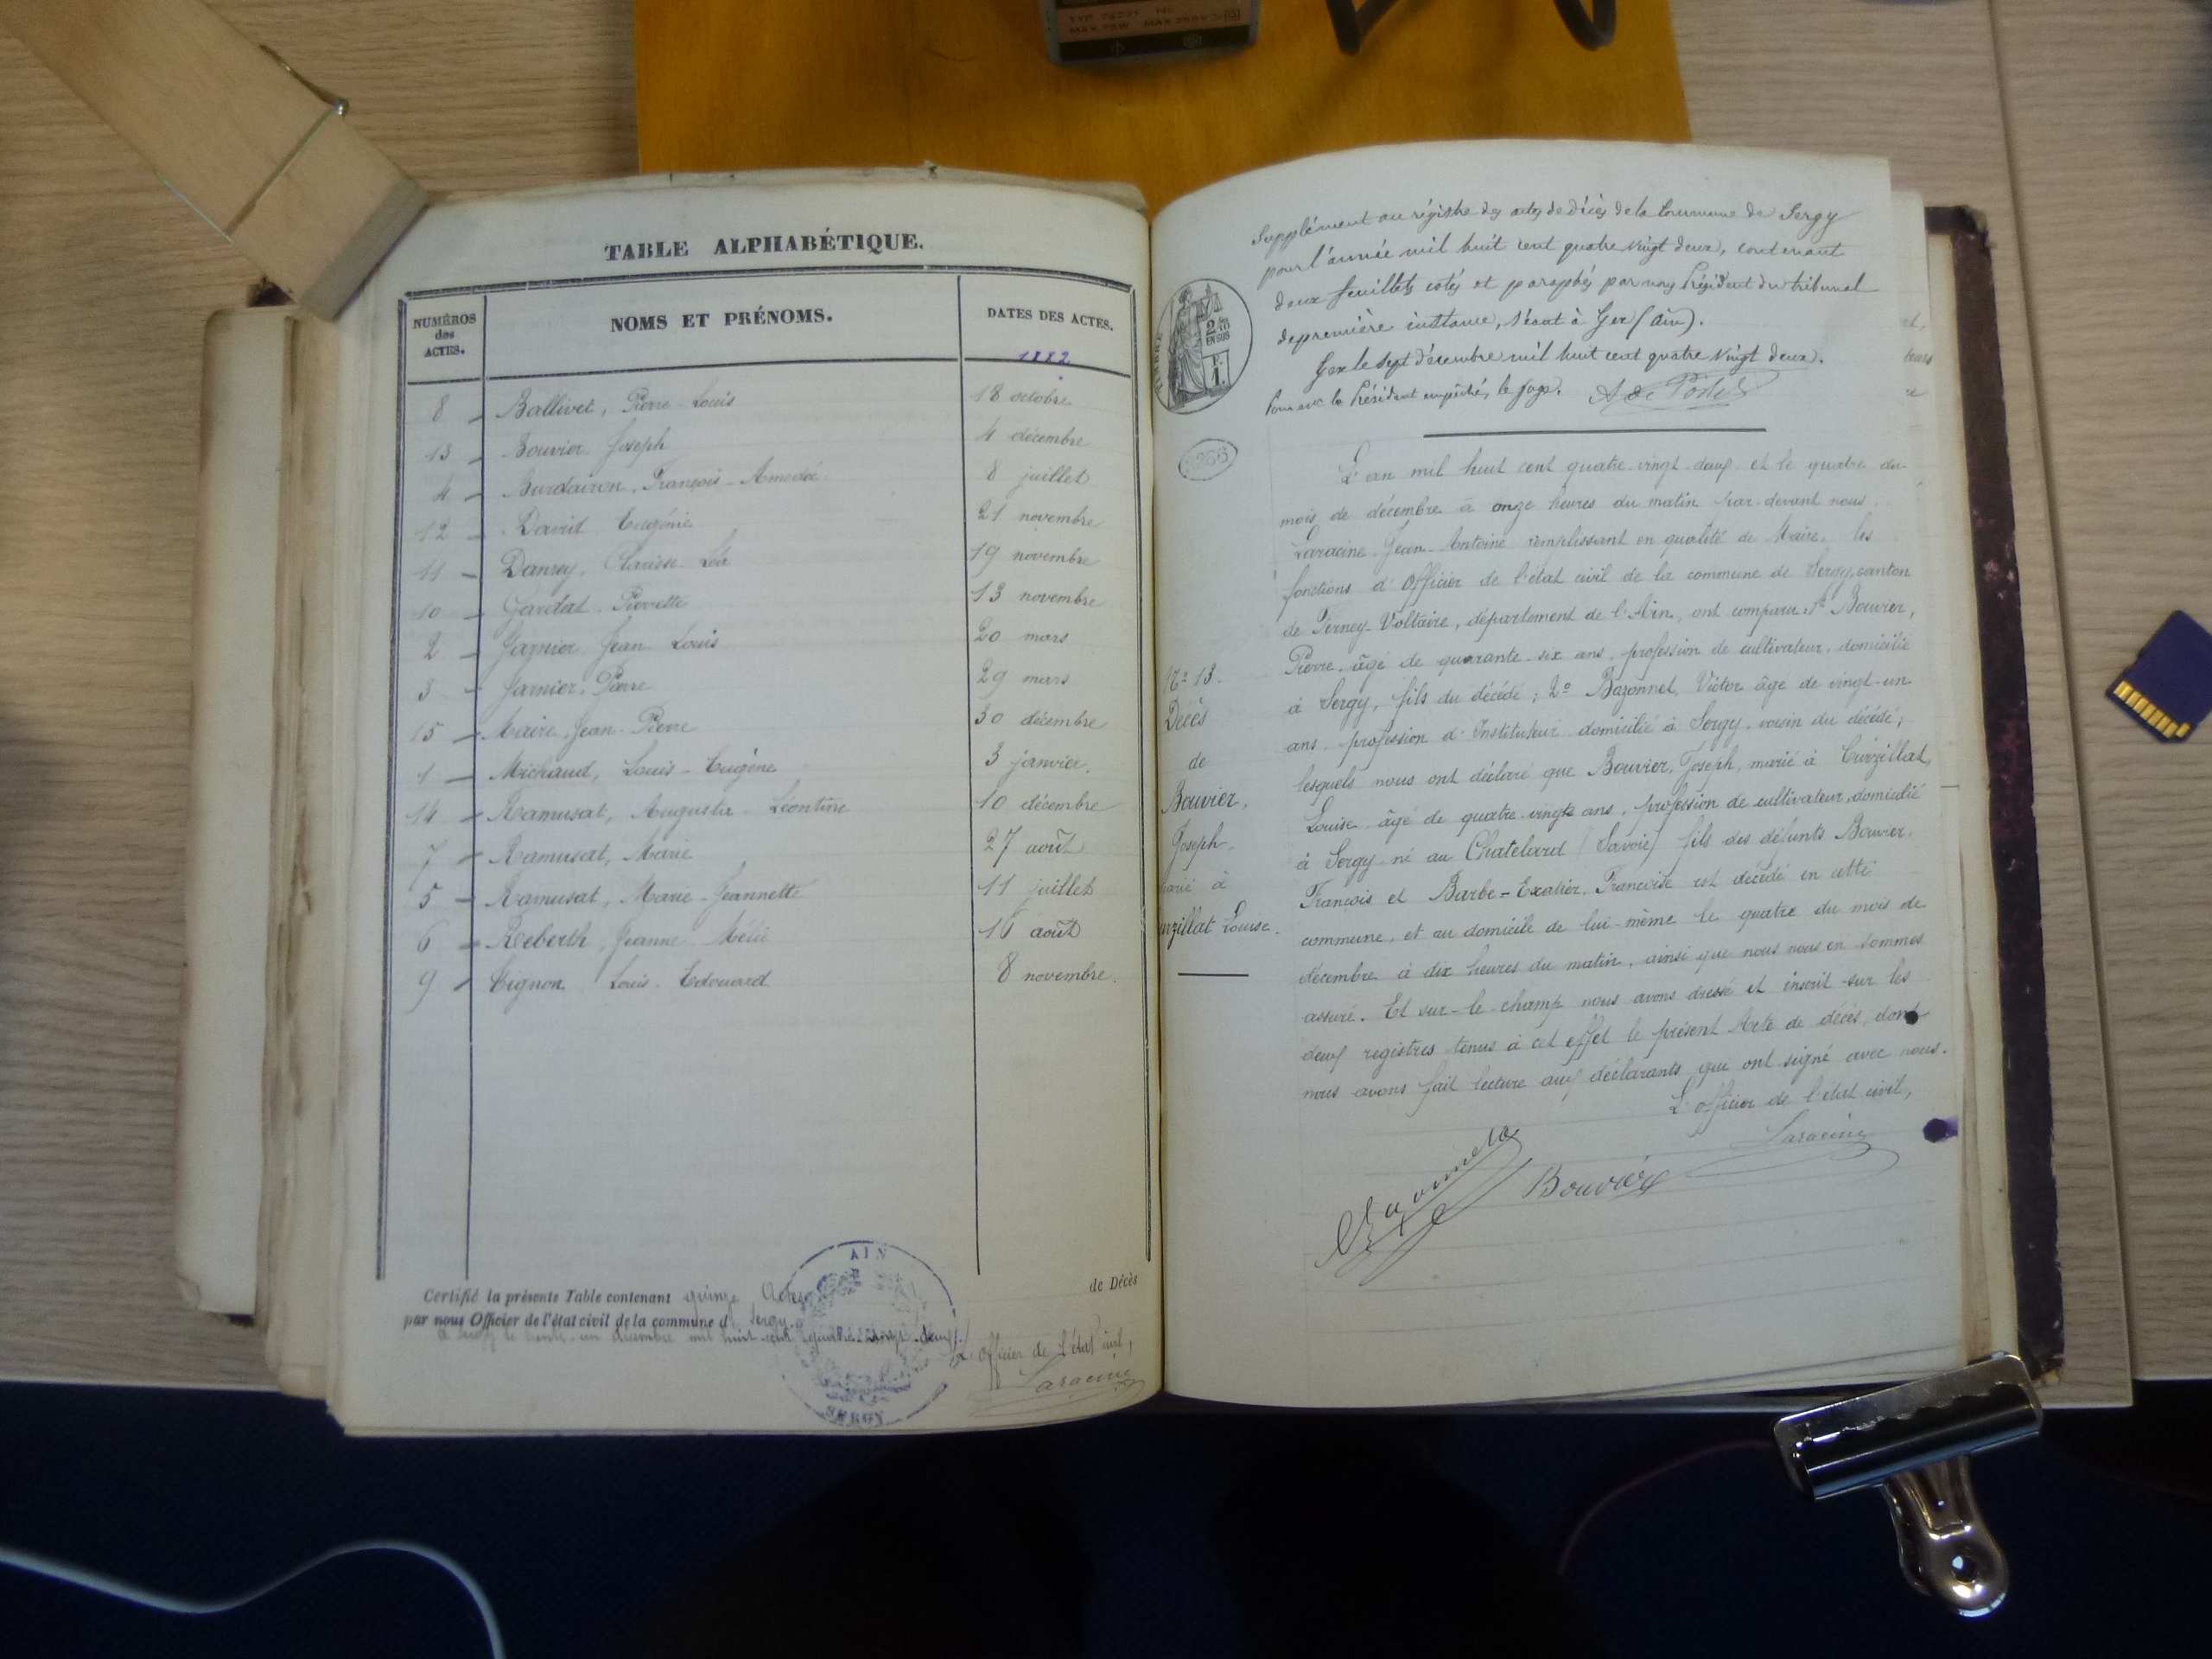 TABLE ALPHABÉTIQUE.
NUMÉROS des ACTES.
NOMS ET PRÉNOMS.
DATES DES ACTES.
1882
8 - Ballivet, Pierre Louis 18 octobre
13 - Bouvier Joseph 4 décembre
4 - François-Amédée 8 juillet
12 - David Eugénie 21 novembre
11 - Danrey, Clarisse Léa 19 novembre
10 - Gardat Pierrette 13 novembre
2 - Jean Louis 20 mars
3 - Pierre 29 mars
15 - Maire Jean-Pierre 30 décembre
1 - Michaud, Louis-Eugène 3 janvier.
14 - Ramusat, Augusta Léontine 10 décembre
7 - Ramusat, Marie 27 août
5 - Ramusat, Marie-Jeannette 11 juillet
6 - Jeanne 16 août
9 - Louis-Edouard 8 novembre.
Certifié la présente Table contenant quinze Actes de Décès
par nous Officier de l'état civil de la commune d Sergy.
à Sergy le trente-un décembre mil huit cent quatre-vingt-deux.
L'officier de l'état civil,
Laracine
AIN
SERGY
Supplément au régistre des actes de décès de la Commune de Sergy
pour l'année mil huit cent quatre vingt deux, contenant
deux feuillets cotés et paraphés par nous Président du tribunal
de première instance, séant à Gex (Ain).
Gex le sept décembre mil huit cent quatre vingt deux.
Pour le Président empêché, le Juge.
TIMBRE
2/10es
EN SUS
1 F.
L'an mil huit cent quatre-vingt-deux et le quatre du
mois de décembre à onze heures du matin par-devant nous
Laracine Jean-Antoine remplissant en qualité de Maire, les
fonctions d'Officier de l'état civil de la commune de Sergy, canton
de Ferney-Voltaire, département de l'Ain, ont comparu 1º Bouvier,
Pierre, âgé de quarante-six ans, profession de cultivateur, domicilié
à Sergy, fils du décédé; 2º Bazonnet, Victor âgé de vingt-un
ans profession d'Instituteur domicilié à Sergy, voisin du décédé;
lesquels nous ont déclaré que Bouvier, Joseph, marié à Curzillat,
Louise âgé de quatre-vingts ans, profession de cultivateur, domicilié
à Sergy né au Chatelard (Savoie) fils des défunts Bouvier,
François et Barbe-Exalier, Françoise est décédé en cette
commune, et au domicile de lui-même le quatre du mois de
décembre à dix heures du matin, ainsi que nous nous en sommes
assuré. Et sur-le-champ nous avons dressé et inscrit sur les
deux registres tenus à cet effet le présent Acte de décès, dont
nous avons fait lecture aux déclarants qui ont signé avec nous.
L'officier de l'état civil,
Laracine
Bazonnet
Bouvier
Nº 13.
Décès
de
Bouvier,
Joseph
marié à
urzillat Louise.